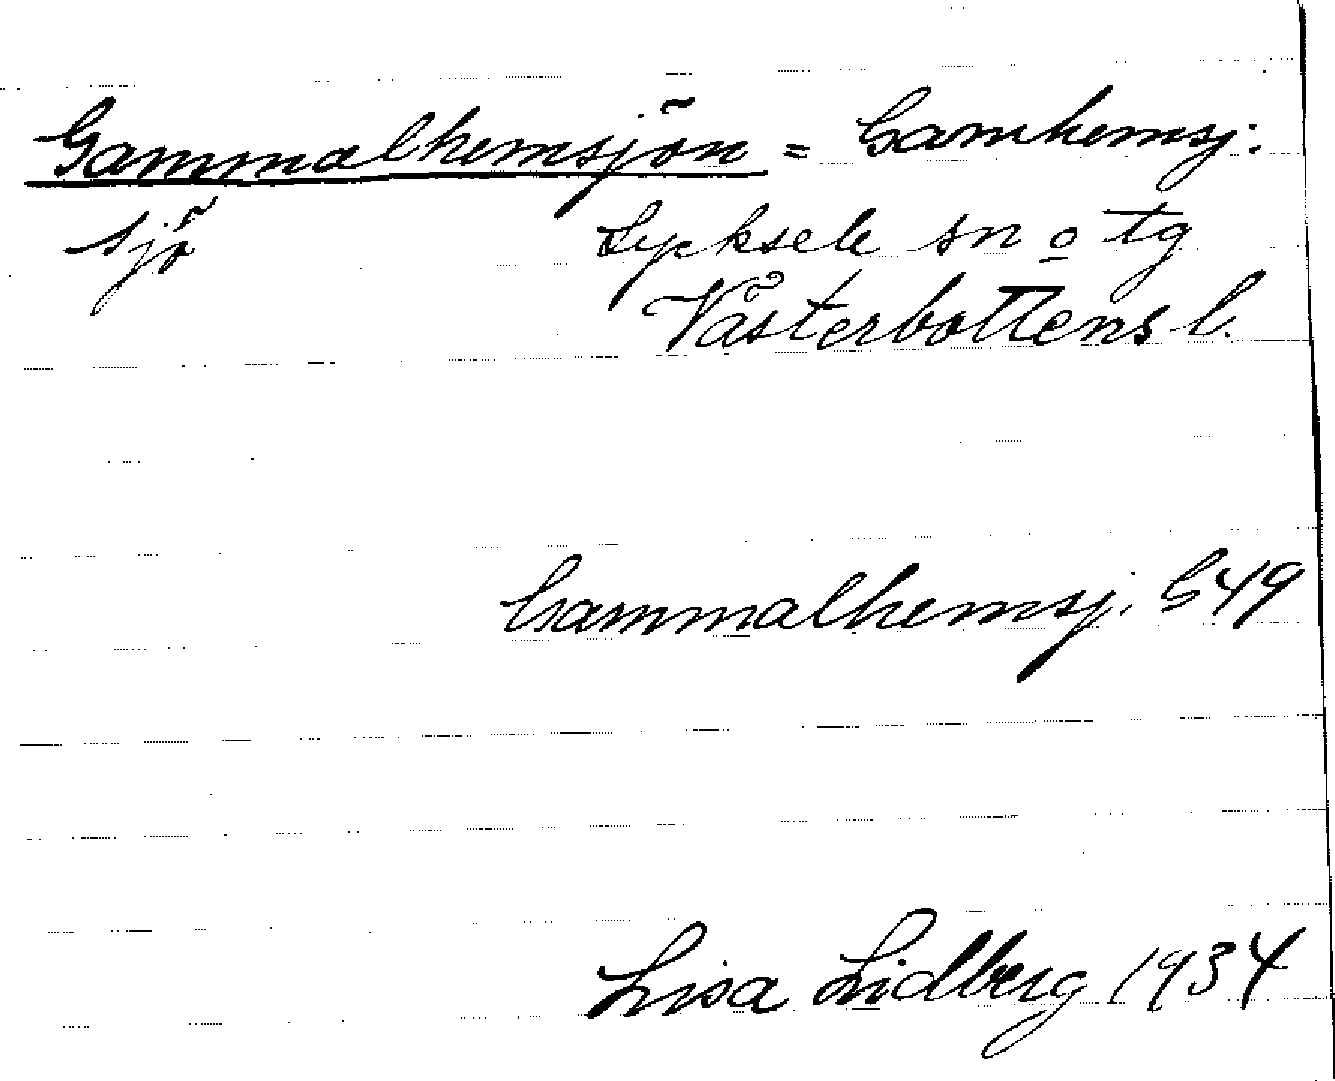 Gammalhemsjön = Gamhemsj:
sjö Lycksele sn o tg
Västerbottens l.
Gammalhemsj. G49
Lisa Lidberg 1934